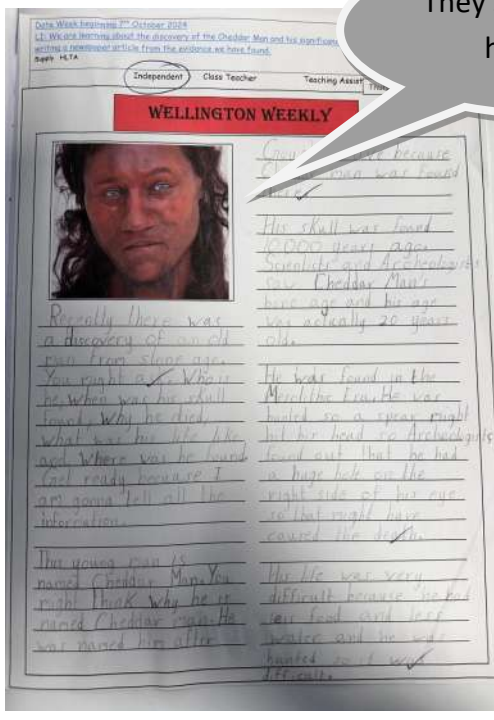 They
h
Date Week beginning 7th October 2024
LI: We are learning about the discovery of the Cheddar Man and his significan
writing a newspaper article from the evidence we have found.
Supply HLTA
Independent Class Teacher Teaching Assist
WELLINGTON WEEKLY
Recently there was
a discovery of an old
man from stone age.
You might ask. Who is
he, when was his skull
found, why he died,
what was his life like
and where was he found.
Get ready because I
am gonna tell all the
information.
This young man is
named Cheddar Man. You
might think why he is
named Cheddar man. He
was named him after
because
Cheddar man was found
there
His skull was found
10,000 years ago.
Scientists and Archeologists
saw Cheddar Man's
bone age and his age
was actually 20 years
old.
He was found in the
era. He was
hunted so a spear might
hit his head so
found out that he had
a huge hole on the
right side of his eye
so that might have
caused the death.
His life was very
difficult because he had
less food and less
water and he was
hunted so it was
difficult.